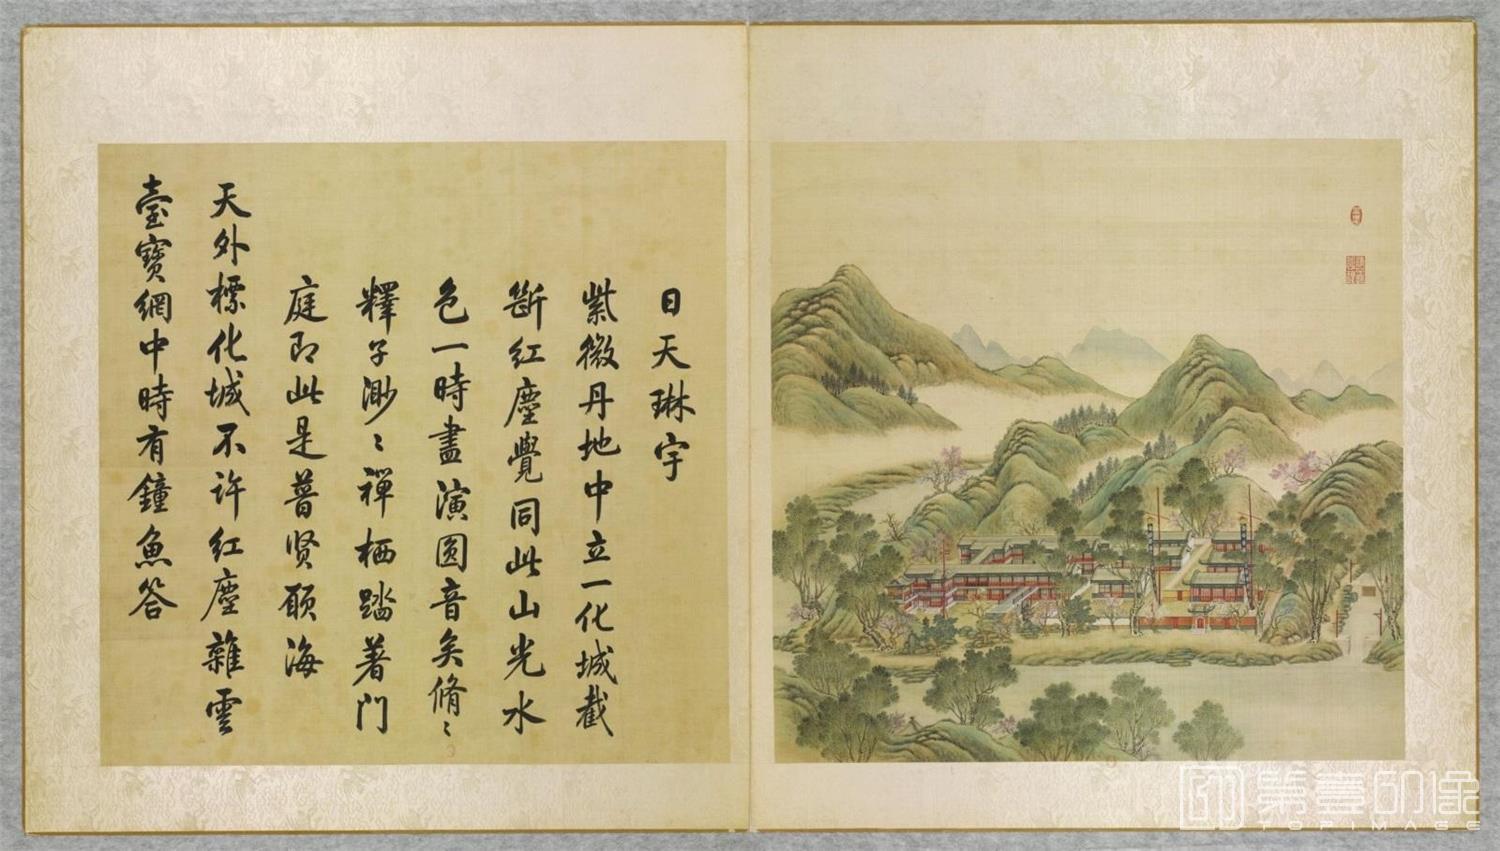 日天琳宇
紫微丹地中立一化城截
斷紅塵覺同此山光水
色一時盡演圓音矣脩〻
釋子渺〻禪栖踏著門
庭即此是普賢願海
天外標化城不許紅塵雜雲
臺寶網中時有鐘魚答
第壹印像
TOPIMAGE